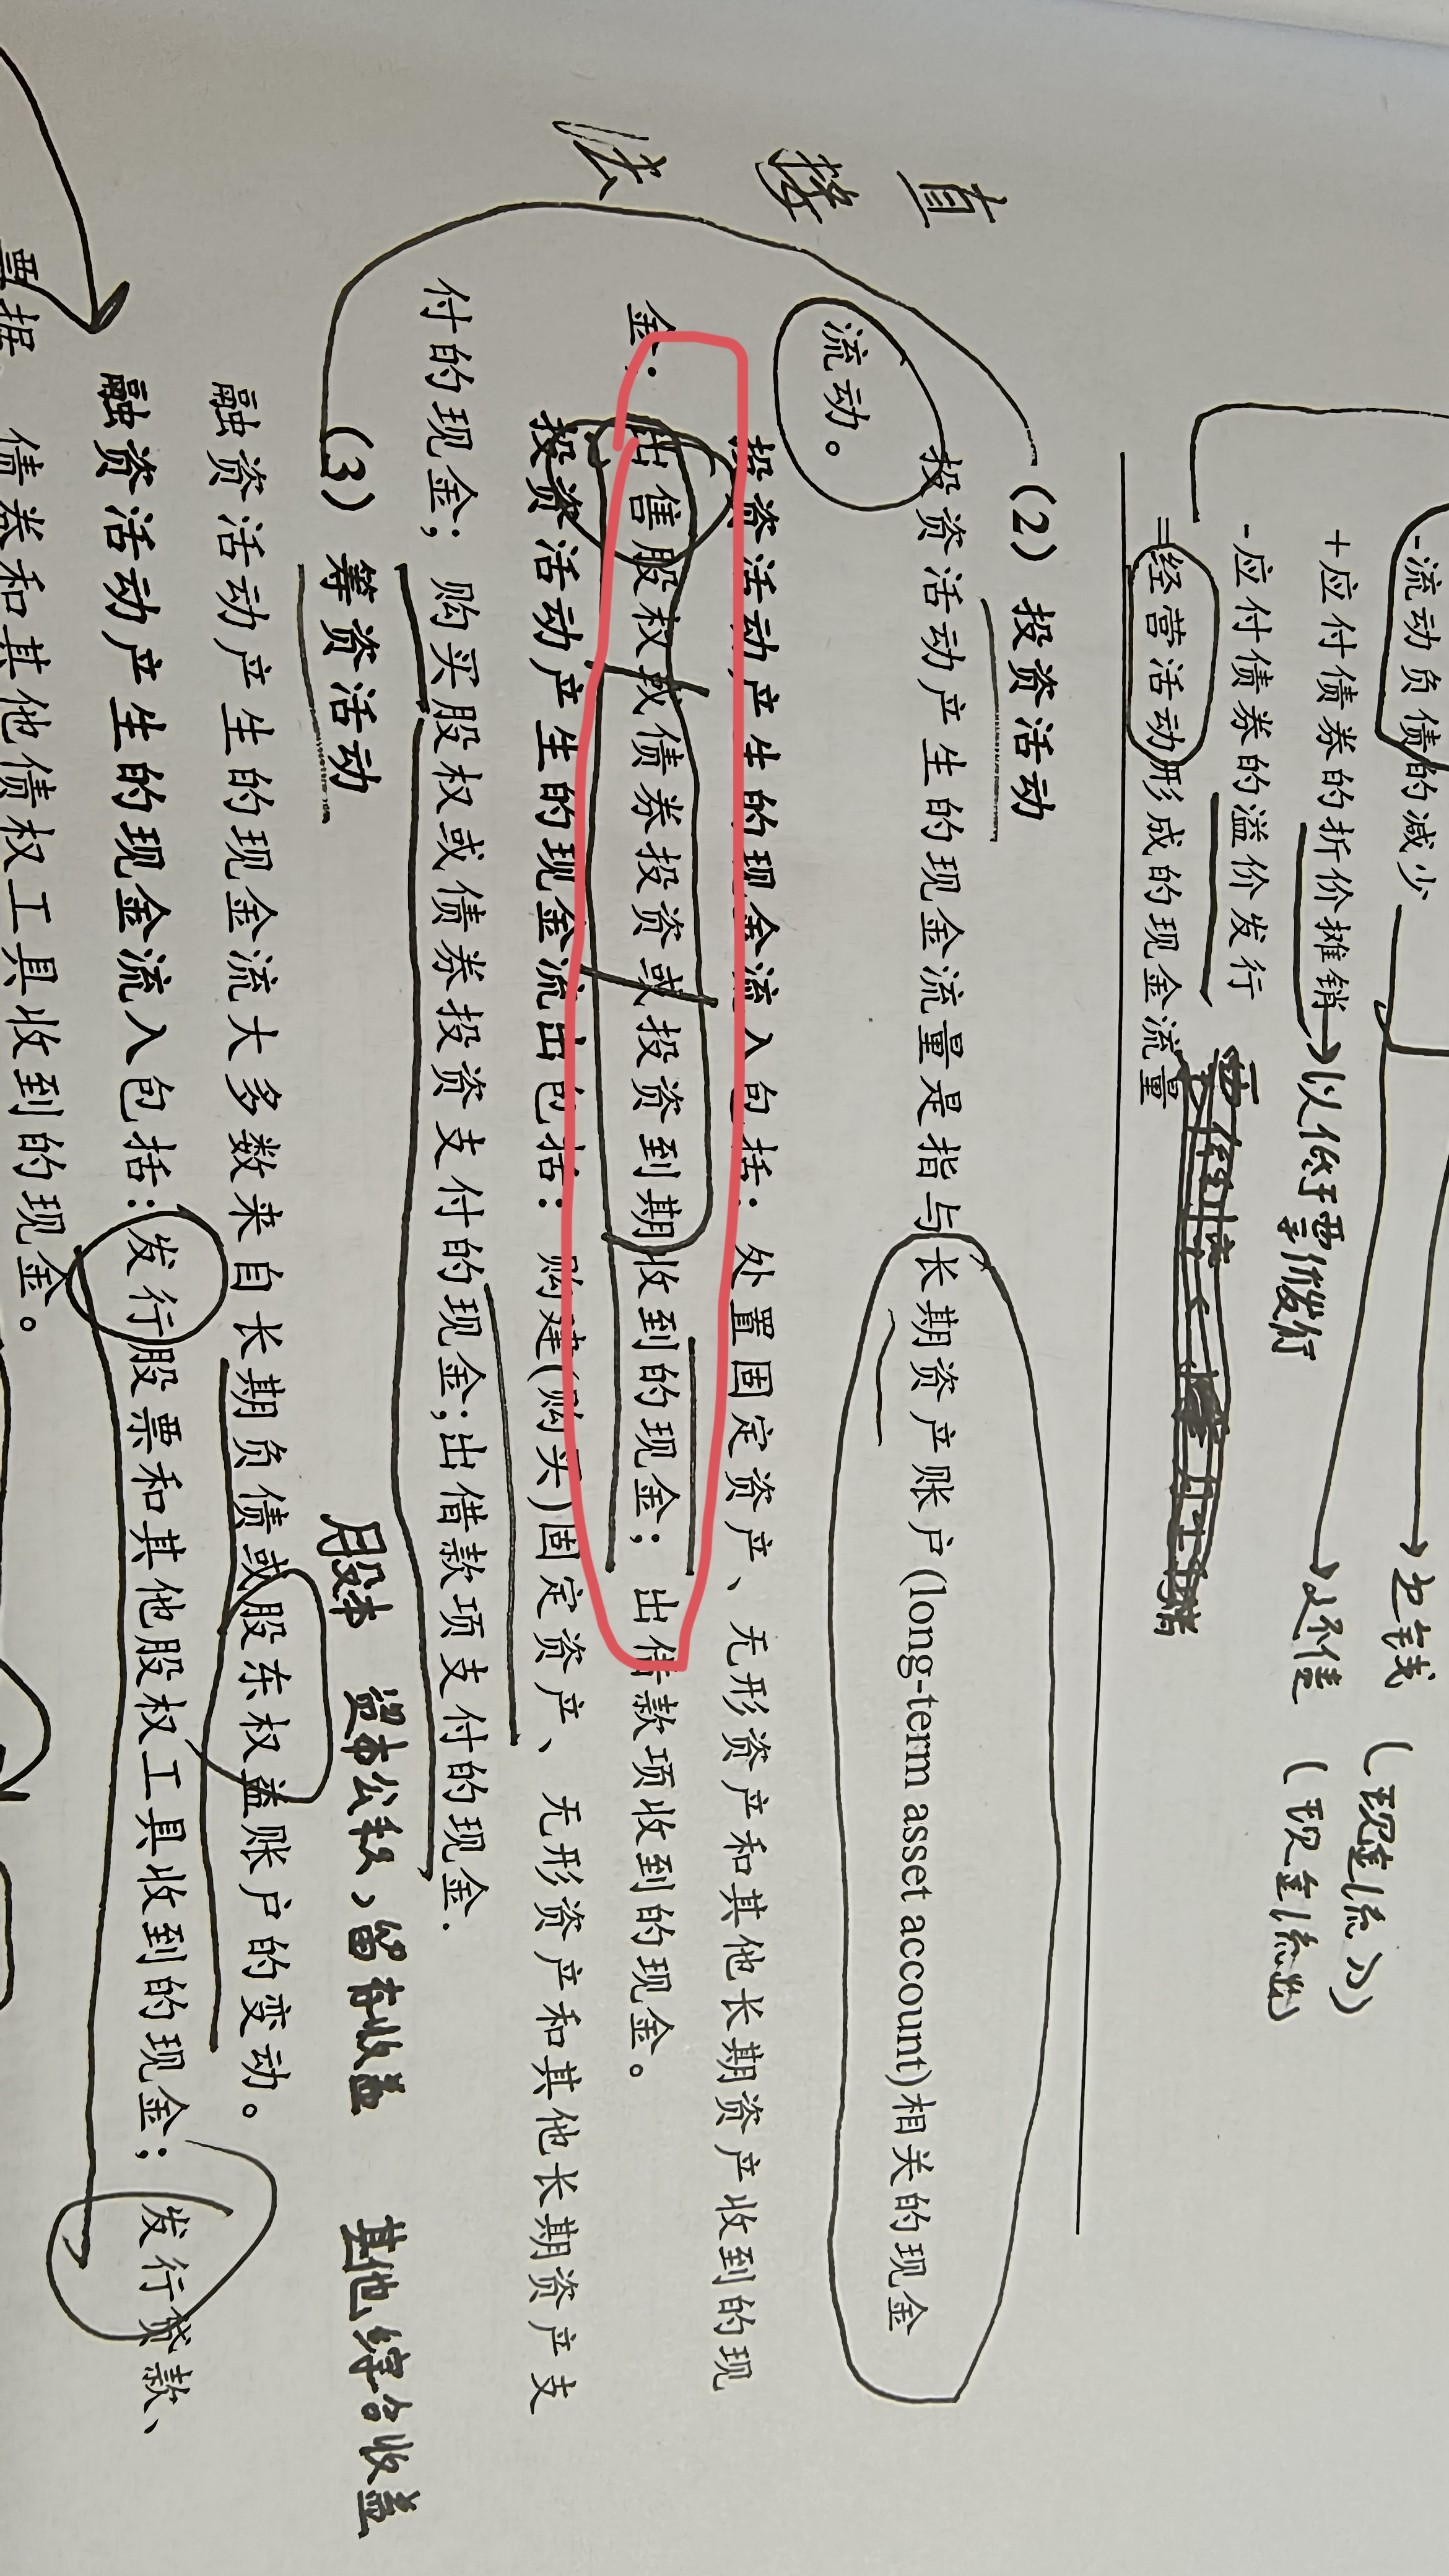 -流动负债的减少
+应付债券的折价摊销→以低于票价发行
-应付债券的溢价发行
=经营活动形成的现金流量
(现金流入)
→还债 (现金流出)
直接法
(2) 投资活动
投资活动产生的现金流量是指与长期资产账户(long-term asset account)相关的现金
流动。
投资活动产生的现金流入包括：处置固定资产、无形资产和其他长期资产收到的现
金；出售股权或债券投资或投资到期收到的现金；出借款项收到的现金。
投资活动产生的现金流出包括：购建(购买)固定资产、无形资产和其他长期资产支
付的现金；购买股权或债券投资支付的现金；出借款项支付的现金.
(3) 筹资活动
股本 资本公积，留存收益 其他综合收益
融资活动产生的现金流大多数来自长期负债或股东权益账户的变动。
融资活动产生的现金流入包括：发行股票和其他股权工具收到的现金；发行贷款、
票据、债券和其他债权工具收到的现金。